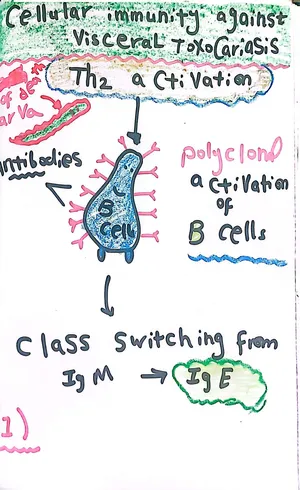 Cellular immunity against
Visceral Toxocariasis
Th2 activation
of de
arva
antibodies
B
cell
polyclonal
activation
of
B cells
Class switching from
IgM → IgE
1)